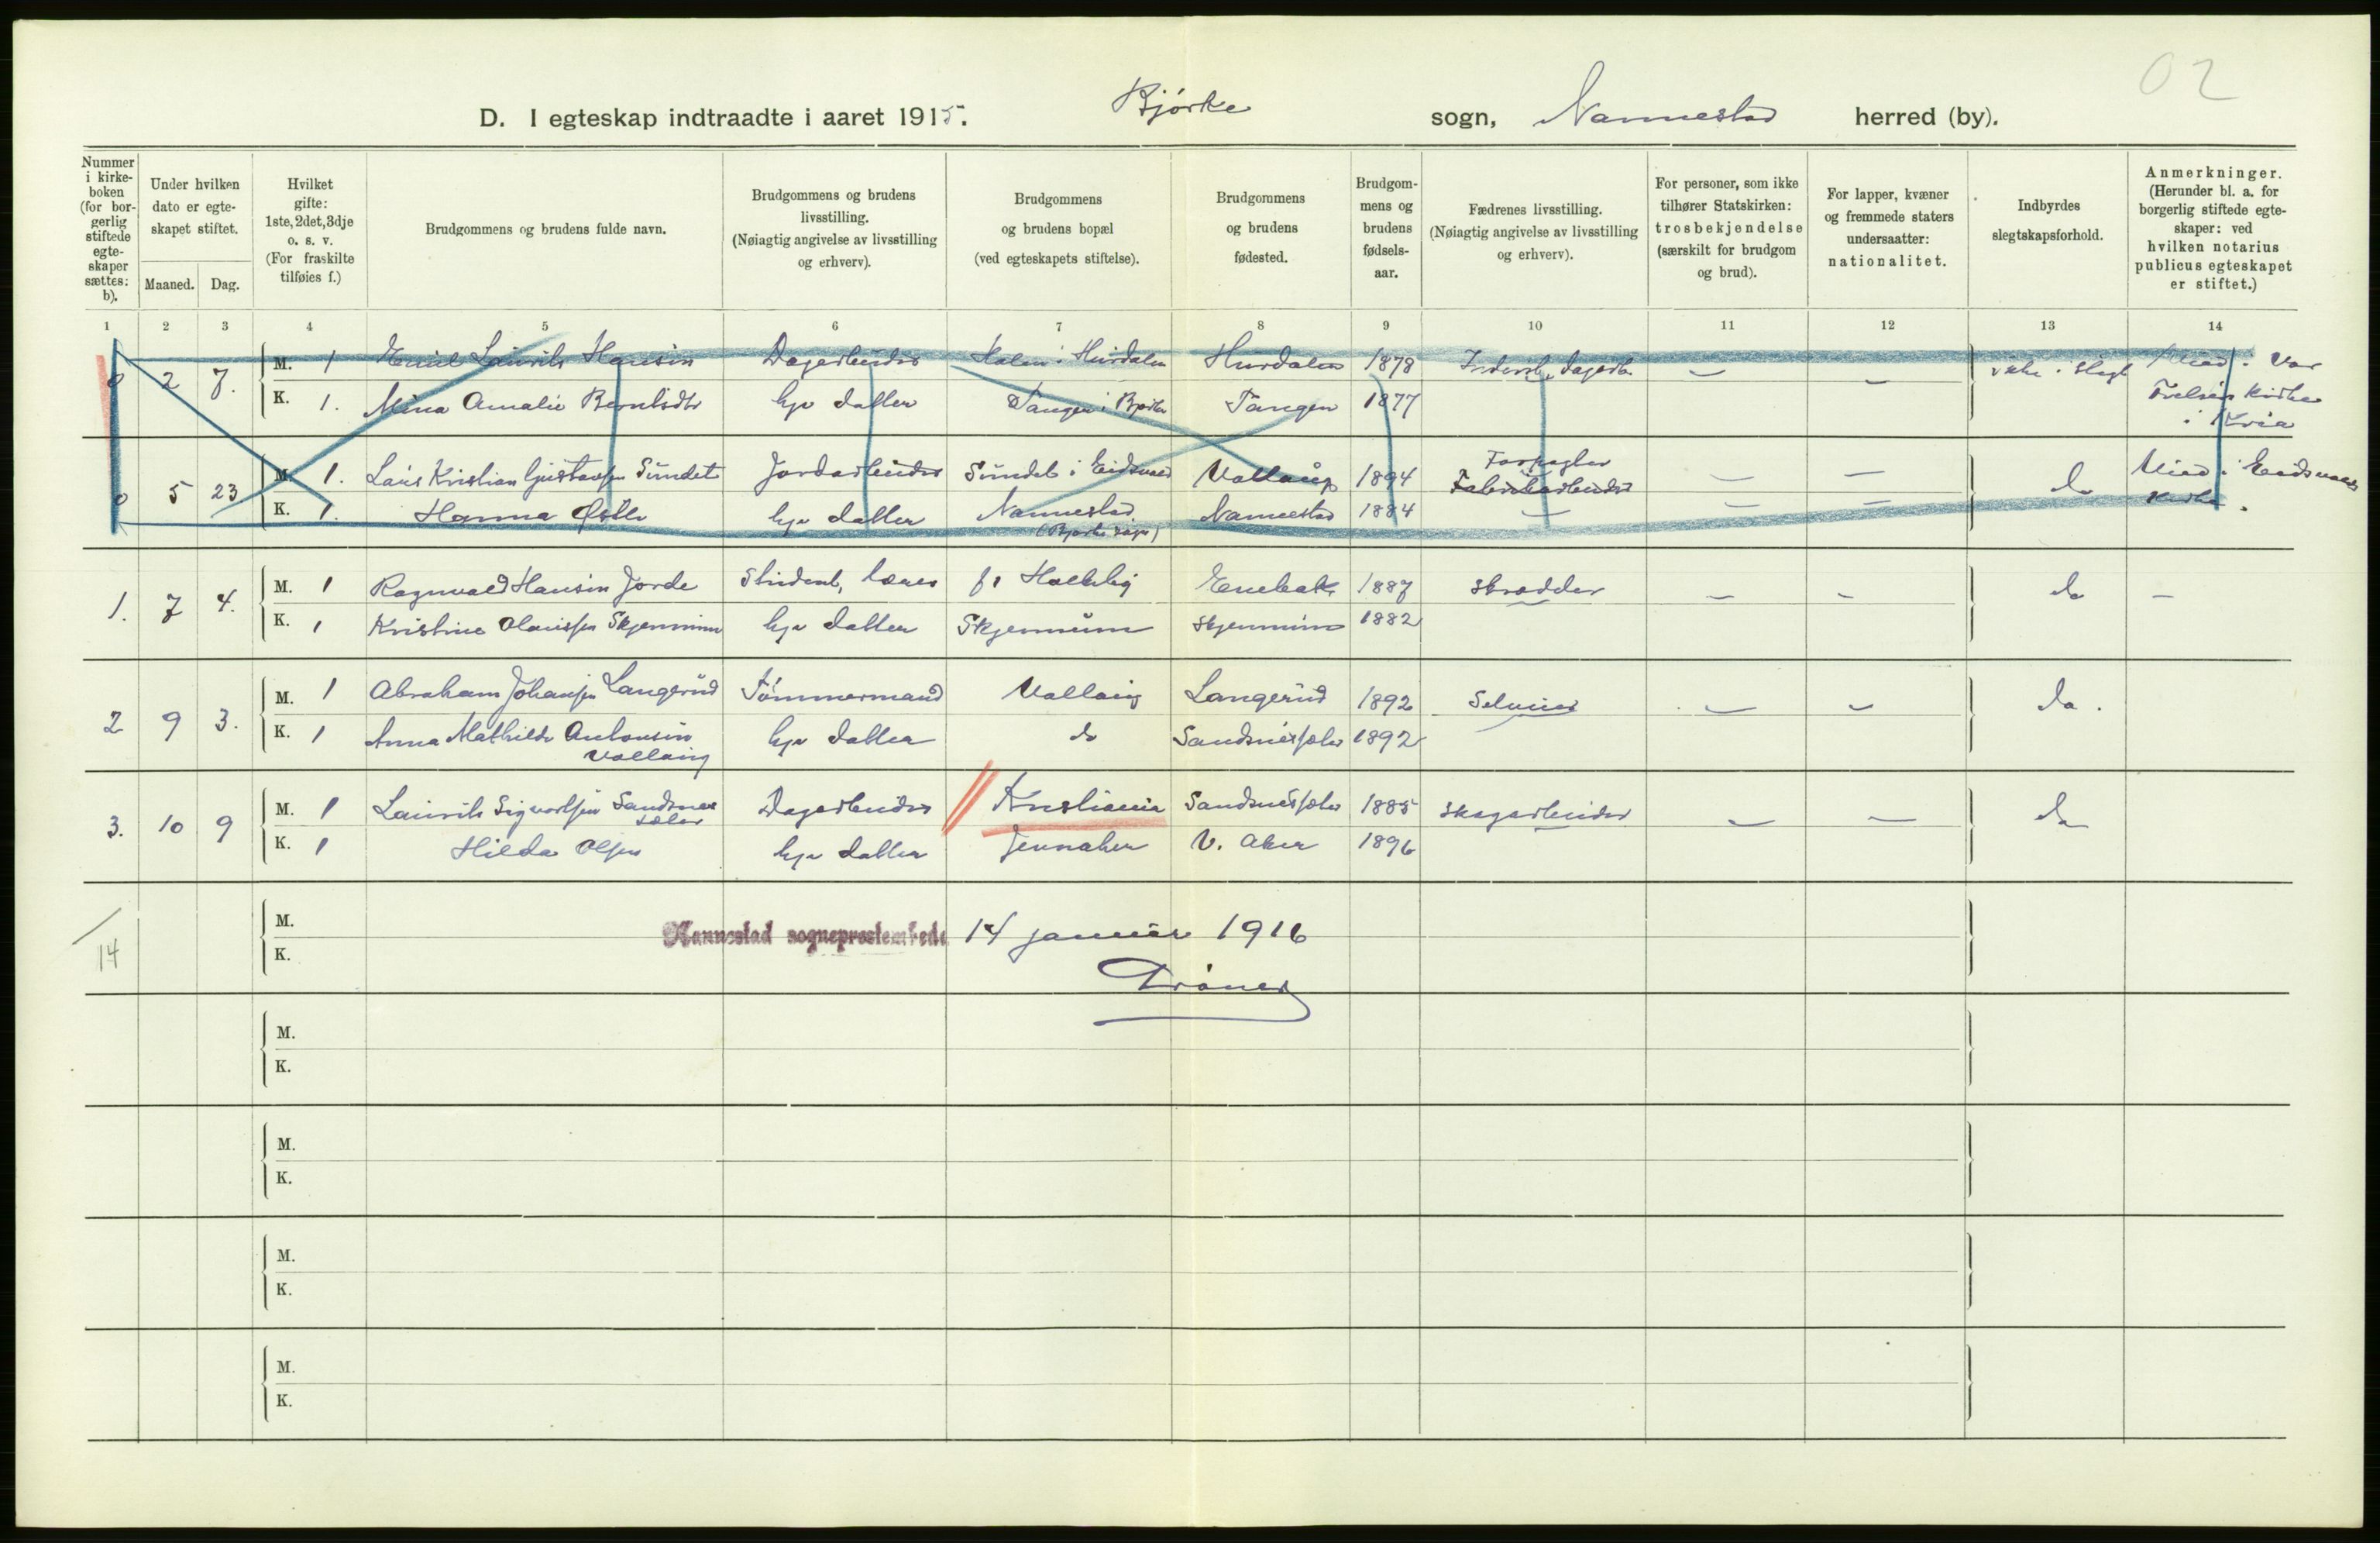 02
D. I egteskap indtraadte i aaret 1915. Bjórke sogn, Nannestad herred (by).
Nummer i kirke-boken (for bor-gerlig stiftede egte-skaper sættes: b).
Under hvilken dato er egte-skapet stiftet.
Maaned. Dag.
Hvilket gifte: 1ste, 2det, 3dje o. s. v. (For fraskilte tilføies f.)
Brudgommens og brudens fulde navn.
Brudgommens og brudens livsstilling. (Nøiagtig angivelse av livsstilling og erhverv).
Brudgommens og brudens bopæl (ved egteskapets stiftelse).
Brudgommens og brudens fødested.
Brudgom-mens og brudens fødsels-aar.
Fædrenes livsstilling. (Nøiagtig angivelse av livsstilling og erhverv).
For personer, som ikke tilhører Statskirken: trosbekjendelse (særskilt for brudgom og brud).
For lapper, kvæner og fremmede staters undersaatter: nationalitet.
Indbyrdes slegtskapsforhold.
Anmerkninger. (Herunder bl. a. for borgerlig stiftede egte-skaper: ved hvilken notarius publicus egteskapet er stiftet.)
1 2 3 4 5 6 7 8 9 10 11 12 13 14
0 2 7. M. 1 Emil Laurits Hansen Dagarbeider i Hurdalen Hurdalen 1878 ikke i slegt Viet i
K. 1. Mina Amalie Berntsdtr hjv datter Tangen i Bjørke Tangen 1877 kirke
0 5 23 M. 1. Lars Kristian Gustavsen Sundet Jordarbeider Sundet i Eidsvold Vallaug 1894 Forpagter Fabrikarbeider — — do Viet i Eidsvold
K. 1. Hanna hjv datter Nannestad Nannestad 1884 — — — kirke.
(Bjørke sogn)
1. 7 4. M. 1 Ragnvald Hansen Jorde Student, lærer Enebak 1887 skrædder — — do —
K. 1 Kristine Olaussen Skjennum hjv datter Skjennum Skjennum 1882
2 9 3. M. 1 Abraham Johansen Langerud Tømmermand Vallaug Langerud 1892 Selveier — — do.
K. 1 Anna Mathilde Antonsen hjv datter do Sandsnessæter 1892
Vallaug
3. 10 9 M. 1 Laurits Sigvartsen Sandsnes Dagarbeider Kristiania Sandsnessæter 1885 skogarbeider — — do
sæter
K. 1 Hilda Olsen hjv datter Jennaker V. Aker 1896
M. Nannestad sogneprestembede 14 januar 1916
14 K.
M.
K.
M.
K.
M.
K.
M.
K.